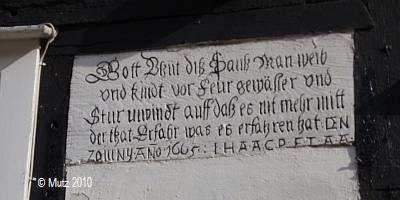 Gott Bhüt diß Hauß Man weib
vnd kindt vor Feur gewässer vnd
Stur unwindt auff daß es nit mehr mitt
der that Erfahr was es erfahren hat. DEN
ANO 1665:
© Mutz 2010